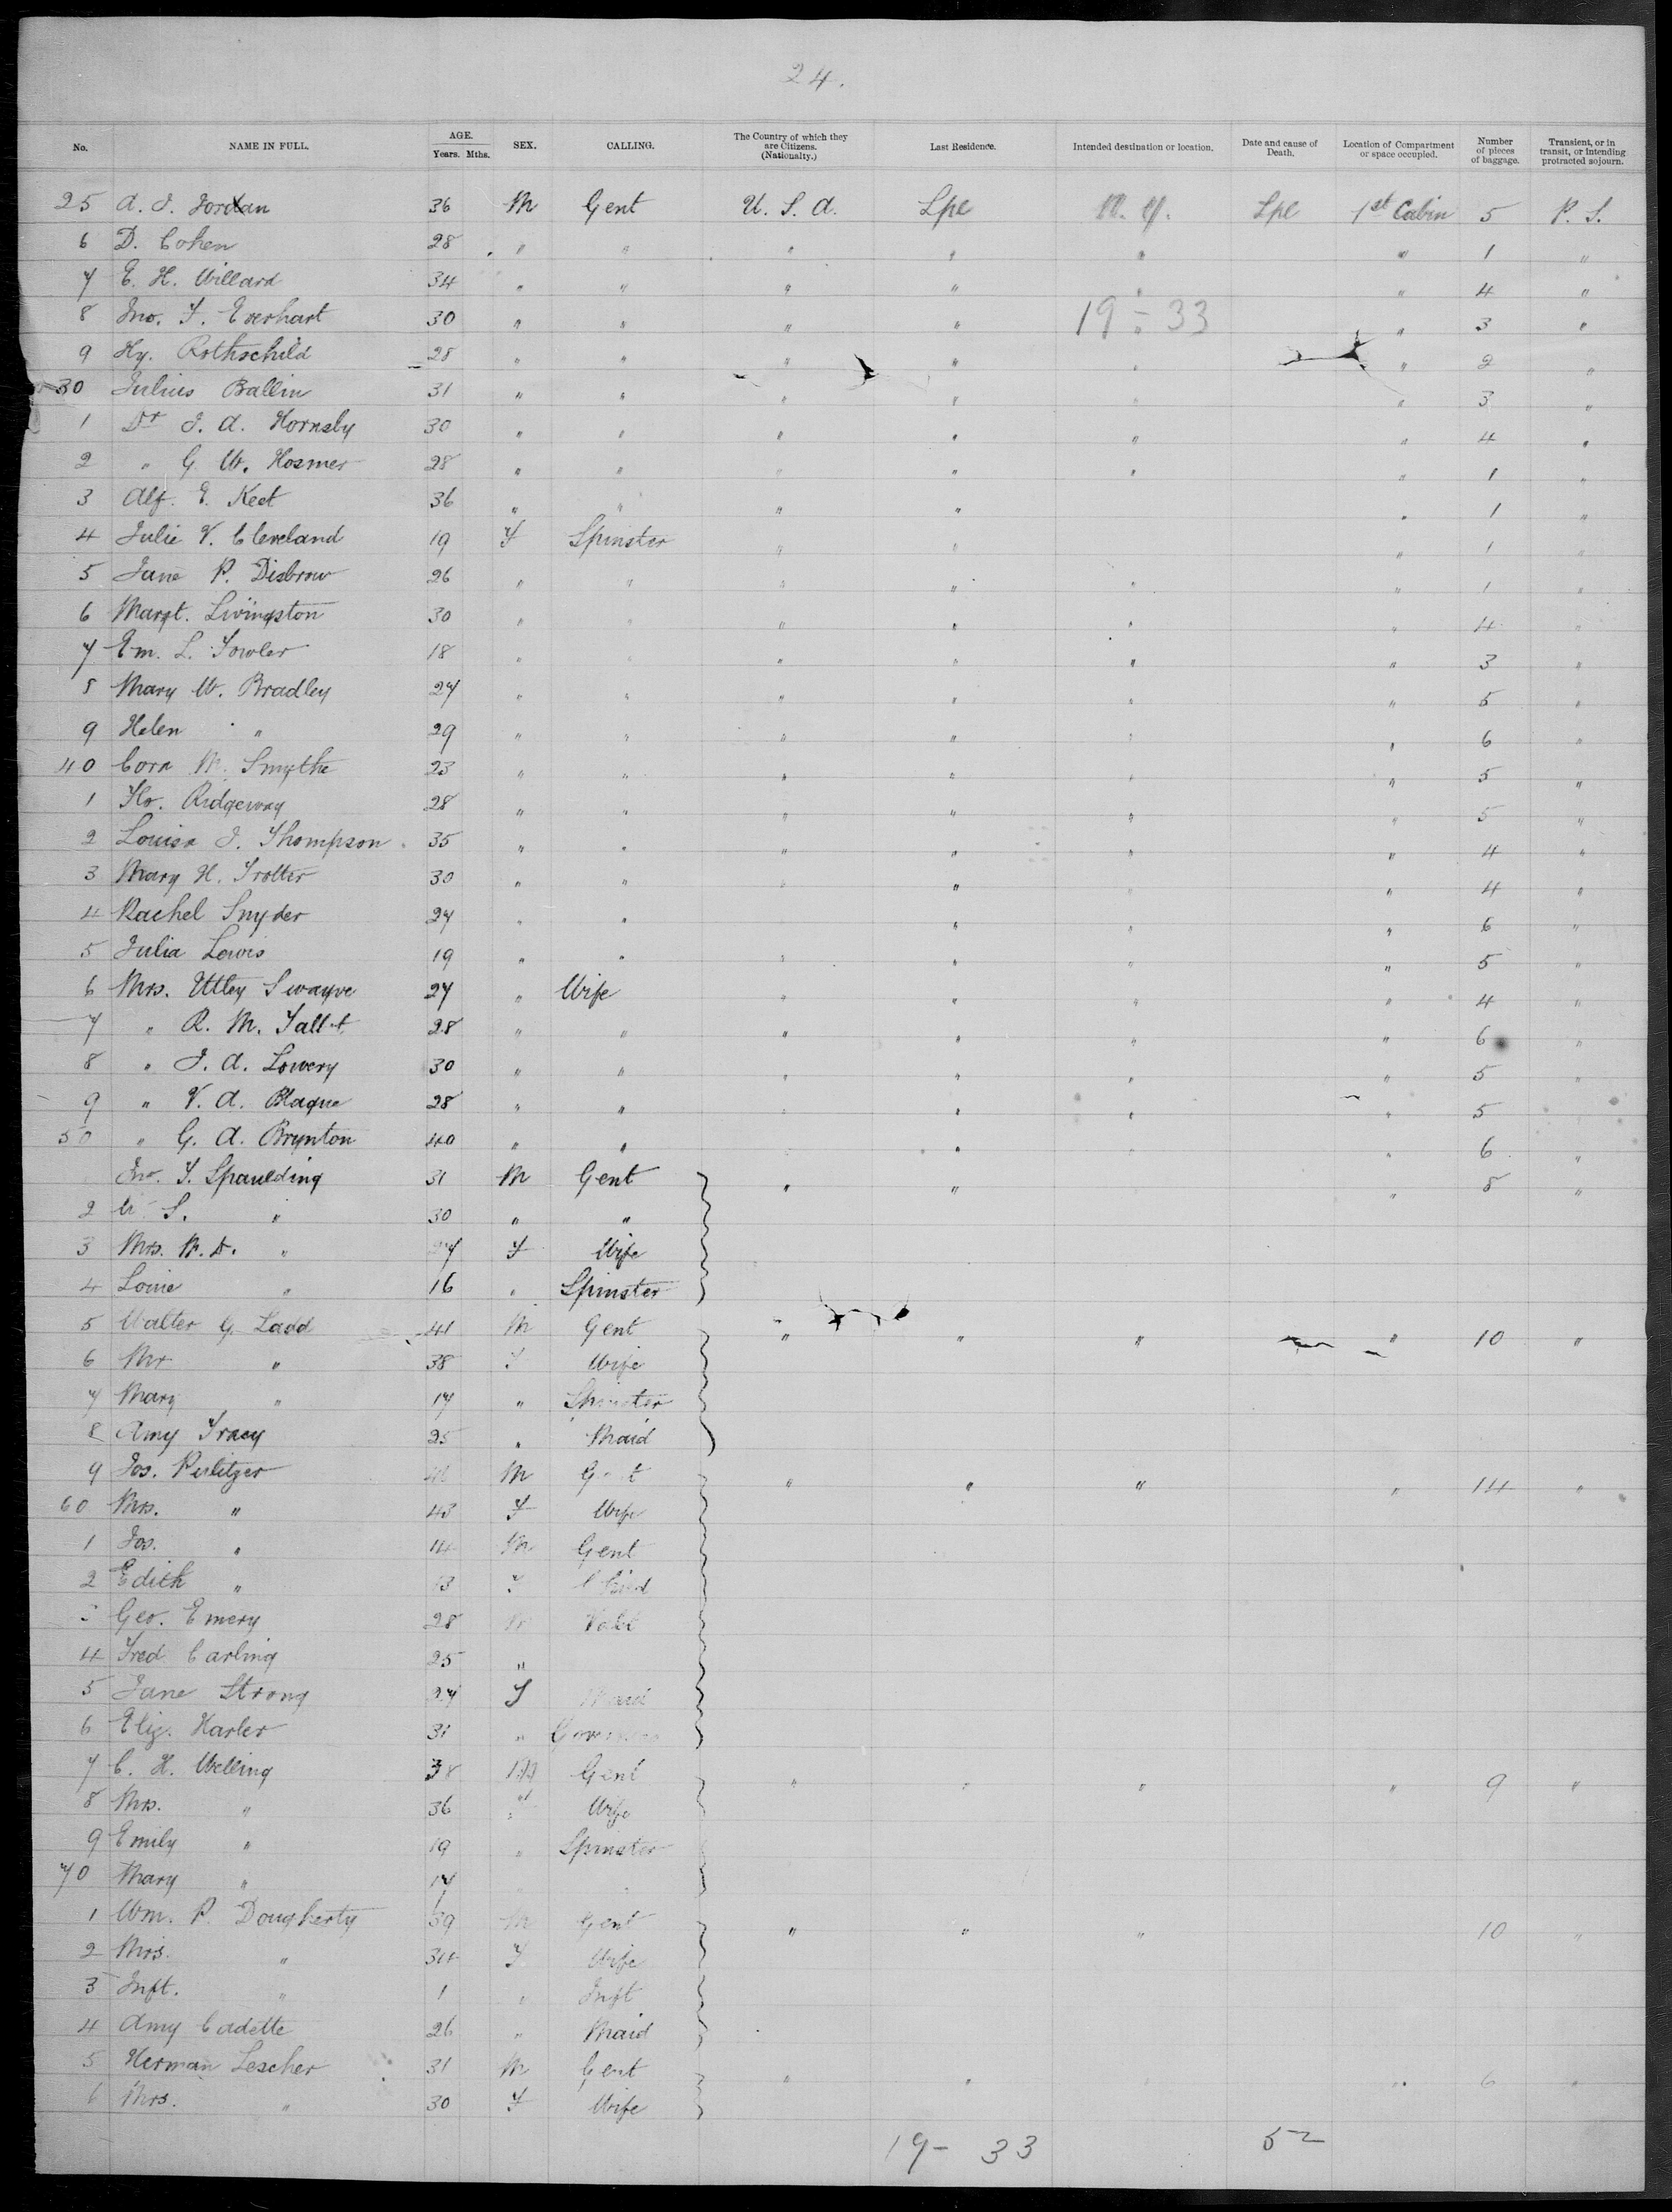 24.
No. NAME IN FULL. AGE. Years. Mths. SEX. CALLING. The Country of which they are Citizens. (Nationalty.) Last Residence. Intended destination or location. Date and cause of Death. Location of Compartment or space occupied. Number of pieces of baggage. Transient, or in transit, or intending protracted sojourn.
25 A. J. Jordan 36 M Gent U. S. A. Lpl N. Y. Lpl 1st Cabin 5 P. S.
6 D. Cohen 28 " " " " " " 1 "
7 E. H. Willard 34 " " " " " " 4 "
8 Jno. F. Everhart 30 " " " " 19 - 33 " 3 "
9 Hy. Rothschild 28 " " " " " " 2 "
30 Julius Ballin 31 " " " " " " 3 "
1 Dr J. A. Hornsby 30 " " " " " " 4 "
2 " G. W. Hosmer 28 " " " " " " 1 "
3 Alf. E. Keet 36 " " " " " 1 "
4 Julie V. Cleveland 19 F Spinster " " " 1 "
5 Jane P. Disbrow 26 " " " " " " 1 "
6 Margt. Livingston 30 " " " " " " 4 "
7 Em. L. Fowler 18 " " " " " " 3 "
8 Mary W. Bradley 27 " " " " " " 5 "
9 Helen " 29 " " " " " " 6 "
40 Cora M. Smythe 23 " " " " " " 5 "
1 Flo. Ridgeway 28 " " " " " " 5 "
2 Louisa J. Thompson 35 " " " " " " 4 "
3 Mary H. Trotter 30 " " " " " " 4 "
4 Rachel Snyder 27 " " " " " 6 "
5 Julia Lewis 19 " " " " " " 5 "
6 Mrs. Utley Swayve 27 " Wife " " " " 4 "
7 " R. M. 28 " " " " " " 6 "
8 " J. A. Lowery 30 " " " " " " 5 "
9 " V. A. Blaque 28 " " " " " " 5 "
50 " G. A. Brynton 40 " " " " " " 6 "
Jno. T. Spaulding 31 M Gent " " " 8 "
2 W. S. " 30 " "
3 Mrs. W. D. " F Wife
4 Louie " 16 " Spinster
5 Walter G. Ladd 41 M Gent " " " " 10 "
6 Mr " 38 F Wife
7 Mary " 17 " Spinster
8 Amy Tracy 25 " Maid
9 Jos. Pulitzer M Gent " " " " 14 "
60 Mrs. " 43 F Wife
1 Jos. " 14 M Gent
2 Edith " 13 F Child
3 Geo. Emery 28 M Valet
4 Fred Carling 25 "
5 Jane Strong 27 F Maid
6 Eliz. Harler 31 " Governess
7 C. H. Welling 38 M Gent " " " " 9 "
8 Mrs. " 36 F Wife
9 Emily " 19 " Spinster
70 Mary " 17 " "
1 Wm. P. Dougherty 39 M Gent " " " 10 "
2 Mrs. " 34 F Wife
3 Inft. " 1 " Inft
4 Amy Cadette 26 " Maid
5 Herman Lescher 31 M Gent " " " 6 "
6 Mrs. " 30 F Wife
19 - 33 52